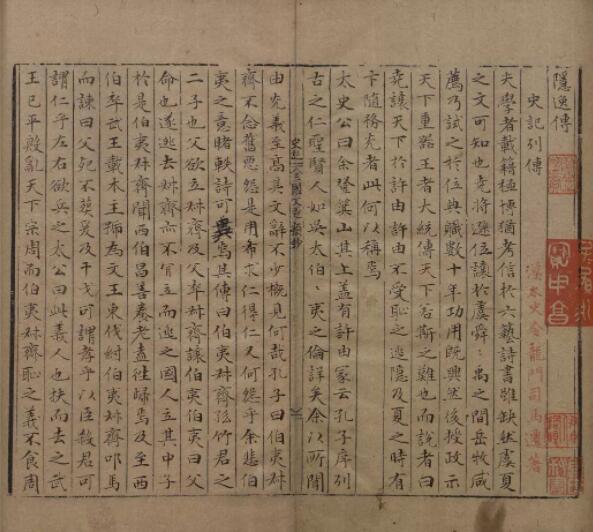 隱逸傳
史記列傳
漢太史令龍門司馬遷著
夫學者載籍極博猶考信於六藝詩書雖缺然虞夏
之文可知也堯將遜位讓於虞舜〻禹之間岳牧咸
薦乃試之於位典職數十年功用既興然後授政示
天下重器王者大統傳天下若斯之難也而說者曰
堯讓天下於許由許由不受恥之逃隱及夏之時有
卞隨務光者此何以稱焉
太史公曰余登箕山其上蓋有許由冢云孔子序列
古之仁聖賢人如吳太伯〻夷之倫詳矣余以所聞
由光義至高其文辭不少概見何哉孔子曰伯夷叔
齊不念舊惡怨是用希求仁得仁又何怨乎余悲伯
夷之意睹軼詩可異焉其傳曰伯夷叔齊孤竹君之
二子也父欲立叔齊及父卒叔齊讓伯夷伯夷曰父
命也遂逃去叔齊亦不肯立而逃之國人立其中子
於是伯夷叔齊聞西伯昌善養老盍往歸焉及至西
伯卒武王載木主號為文王東伐紂伯夷叔齊叩馬
而諫曰父死不葬爰及干戈可謂孝乎以臣弒君可
謂仁乎左右欲兵之太公曰此義人也扶而去之武
王已平殷亂天下宗周而伯夷叔齊恥之義不食周